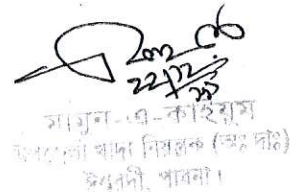 ২২/১২/২১
মামুন-এ-কাইয়ুম
উপজেলা খাদ্য নিয়ন্ত্রক (অঃ দাঃ)
ঈশ্বরদী, পাবনা।